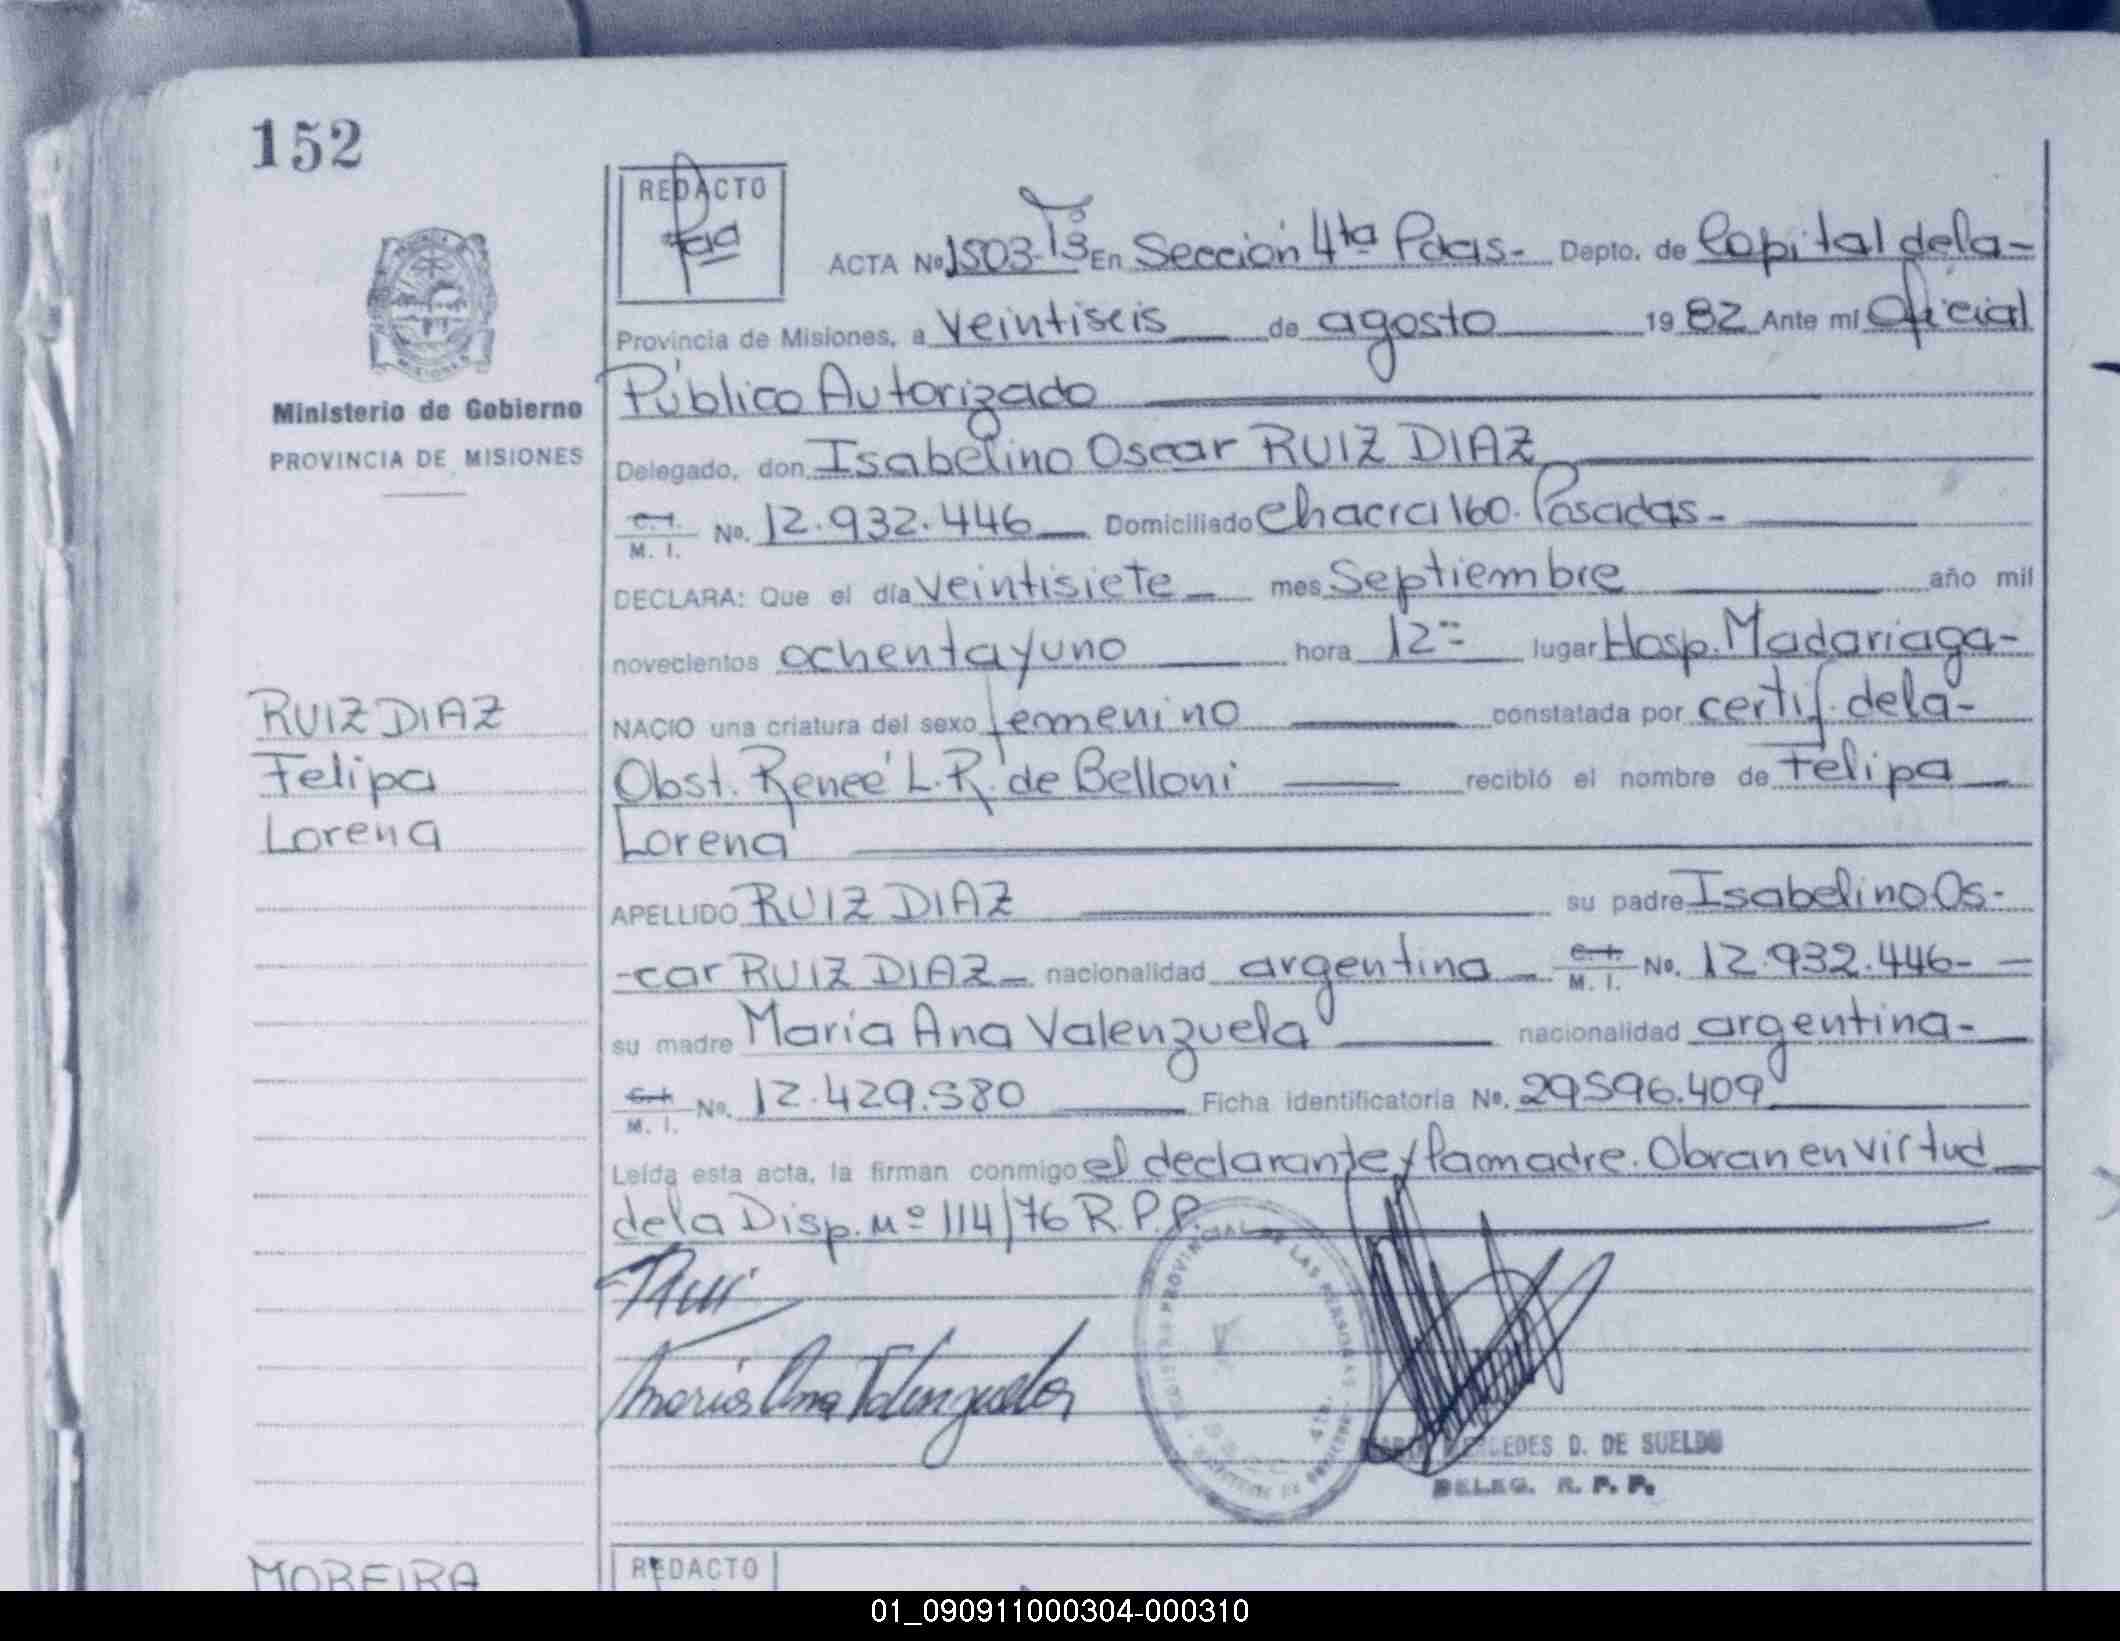 152
REDACTO
ACTA Nº 1503 Tº 3 En Sección 4ta Pdas- Depto. de Capital de la-
Provincia de Misiones, a veintiseis de agosto 19 82 Ante mi Oficial
Público Autorizado
Ministerio de Gobierno
PROVINCIA DE MISIONES
Delegado, don Isabelino Oscar RUIZ DIAZ
C.I. M. I. No. 12.932.446 Domiciliado Chacra 160. Posadas-
DECLARA: Que el día veintisiete mes Septiembre año mil
novecientos ochenta y uno hora 12 lugar Hosp. Madariaga-
RUIZ DIAZ
Felipa
Lorena
NACIO una criatura del sexo femenino constatada por certif. de la-
Obst. Reneé L. R. de Belloni recibió el nombre de Felipa
Lorena
APELLIDO RUIZ DIAZ su padre Isabelino Os-
-car RUIZ DIAZ nacionalidad argentina C.I. M. I. No. 12.932.446-
su madre María Ana Valenzuela nacionalidad argentina-
C.I. M. I. No. 12.429.580 Ficha identificatoria No. 29596.409
Leída esta acta, la firman conmigo el declarante y la madre. Obran en virtud
de la Disp. Nº 114/76 R.P.P.
María Ana Valenzuela
PROVINCIAL DE LAS PERSONAS
MERCEDES D. DE SUELDO
DELEG. R. P. P.
MOREIRA
REDACTO
01_090911000304-000310